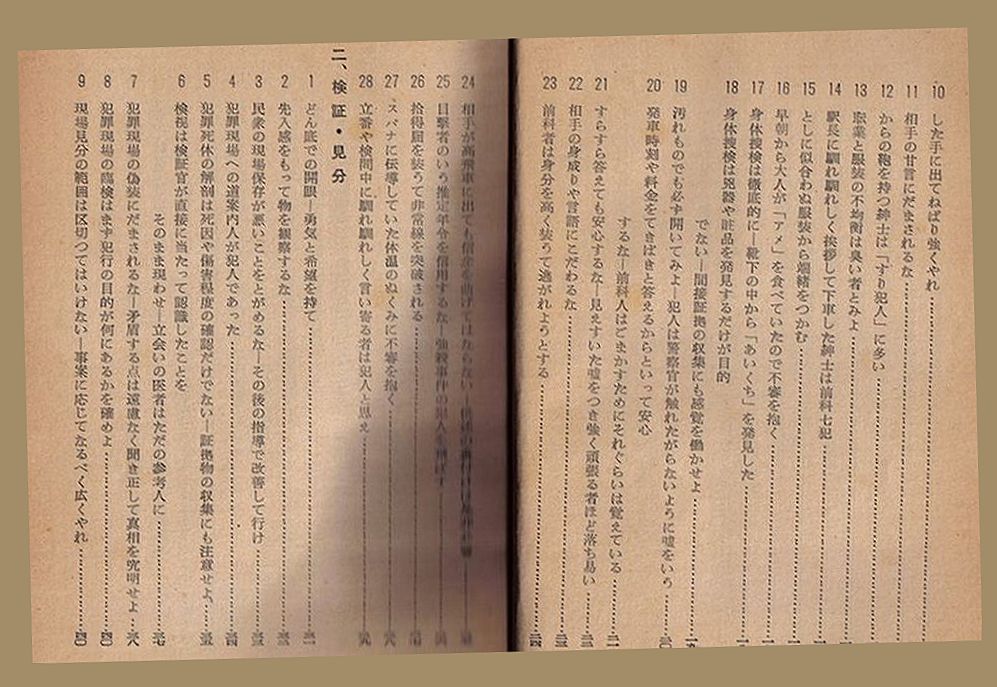 10 した手に出てねばり強くやれ
11 相手の甘言にだまされるな
12 からの鞄を持つ紳士は「すり犯人」に多い
13 職業と服装の不均衡は臭い者とみよ
14 駅長に馴れ馴れしく挨拶して下車した紳士は前科七犯
15 としに似合わぬ服装から端緒をつかむ
16 早朝から大人が「アメ」を食べていたので不審を抱く
17 身体捜検は徹底的に―靴下の中から「あいくち」を発見した
18 身体捜検は兇器や贓品を発見するだけが目的
でない―間接証拠の収集にも感覚を働かせよ
19 汚れものでも必ず開いてみよ―犯人は警察官が触れたがらないように嘘をいう
20 発車時刻や料金をてきぱきと答えるからといって安心
するな―前科人はごまかすためにそれぐらいは覚えている
21 すらすら答えても安心するな―見えすいた嘘をつき強く頑張る者ほど落ち易い
22 相手の身成りや言語にこだわるな
23 前科者は身分を高く装って逃がれようとする
24 相手が高飛車に出ても信念を曲げてはならない
25 目撃者のいう推定年令を信用するな―強殺事件の犯人を
26 拾得届を装うて非常線を突破される
27 スパナに伝導していた体温のぬくみに不審を抱く
28 立番や検問中に馴れ馴れしく言い寄る者は犯人と思え
二、検証・見分
1 どん底での開眼―勇気と希望を持て
2 先入感をもって物を観察するな
3 民衆の現場保存が悪いことをとがめるな―その後の指導で改善して行け
4 犯罪現場への道案内人が犯人であった
5 犯罪死体の解剖は死因や傷害程度の確認だけでない―証拠物の収集にも注意せよ
6 検視は検証官が直接に当たって認識したことを
そのまま現わせ―立会いの医者はただの参考人に
7 犯罪現場の偽装にだまされるな―矛盾する点は遠慮なく聞き正して真相を究明せよ
8 犯罪現場の臨検はまず犯行の目的が何にあるかを確めよ
9 現場見分の範囲は区切つてはいけない―事案に応じてなるべく広くやれ